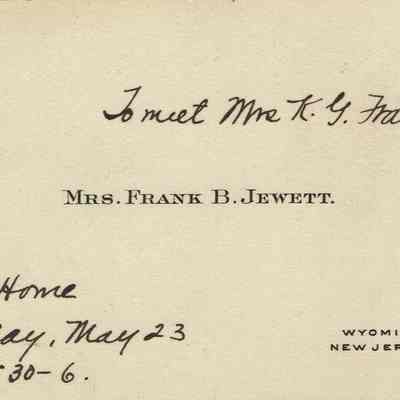 To meet Mrs K. G. Fra
MRS. FRANK B. JEWETT.
Home
ay, May 23
30-6.
WYOMI
NEW JER